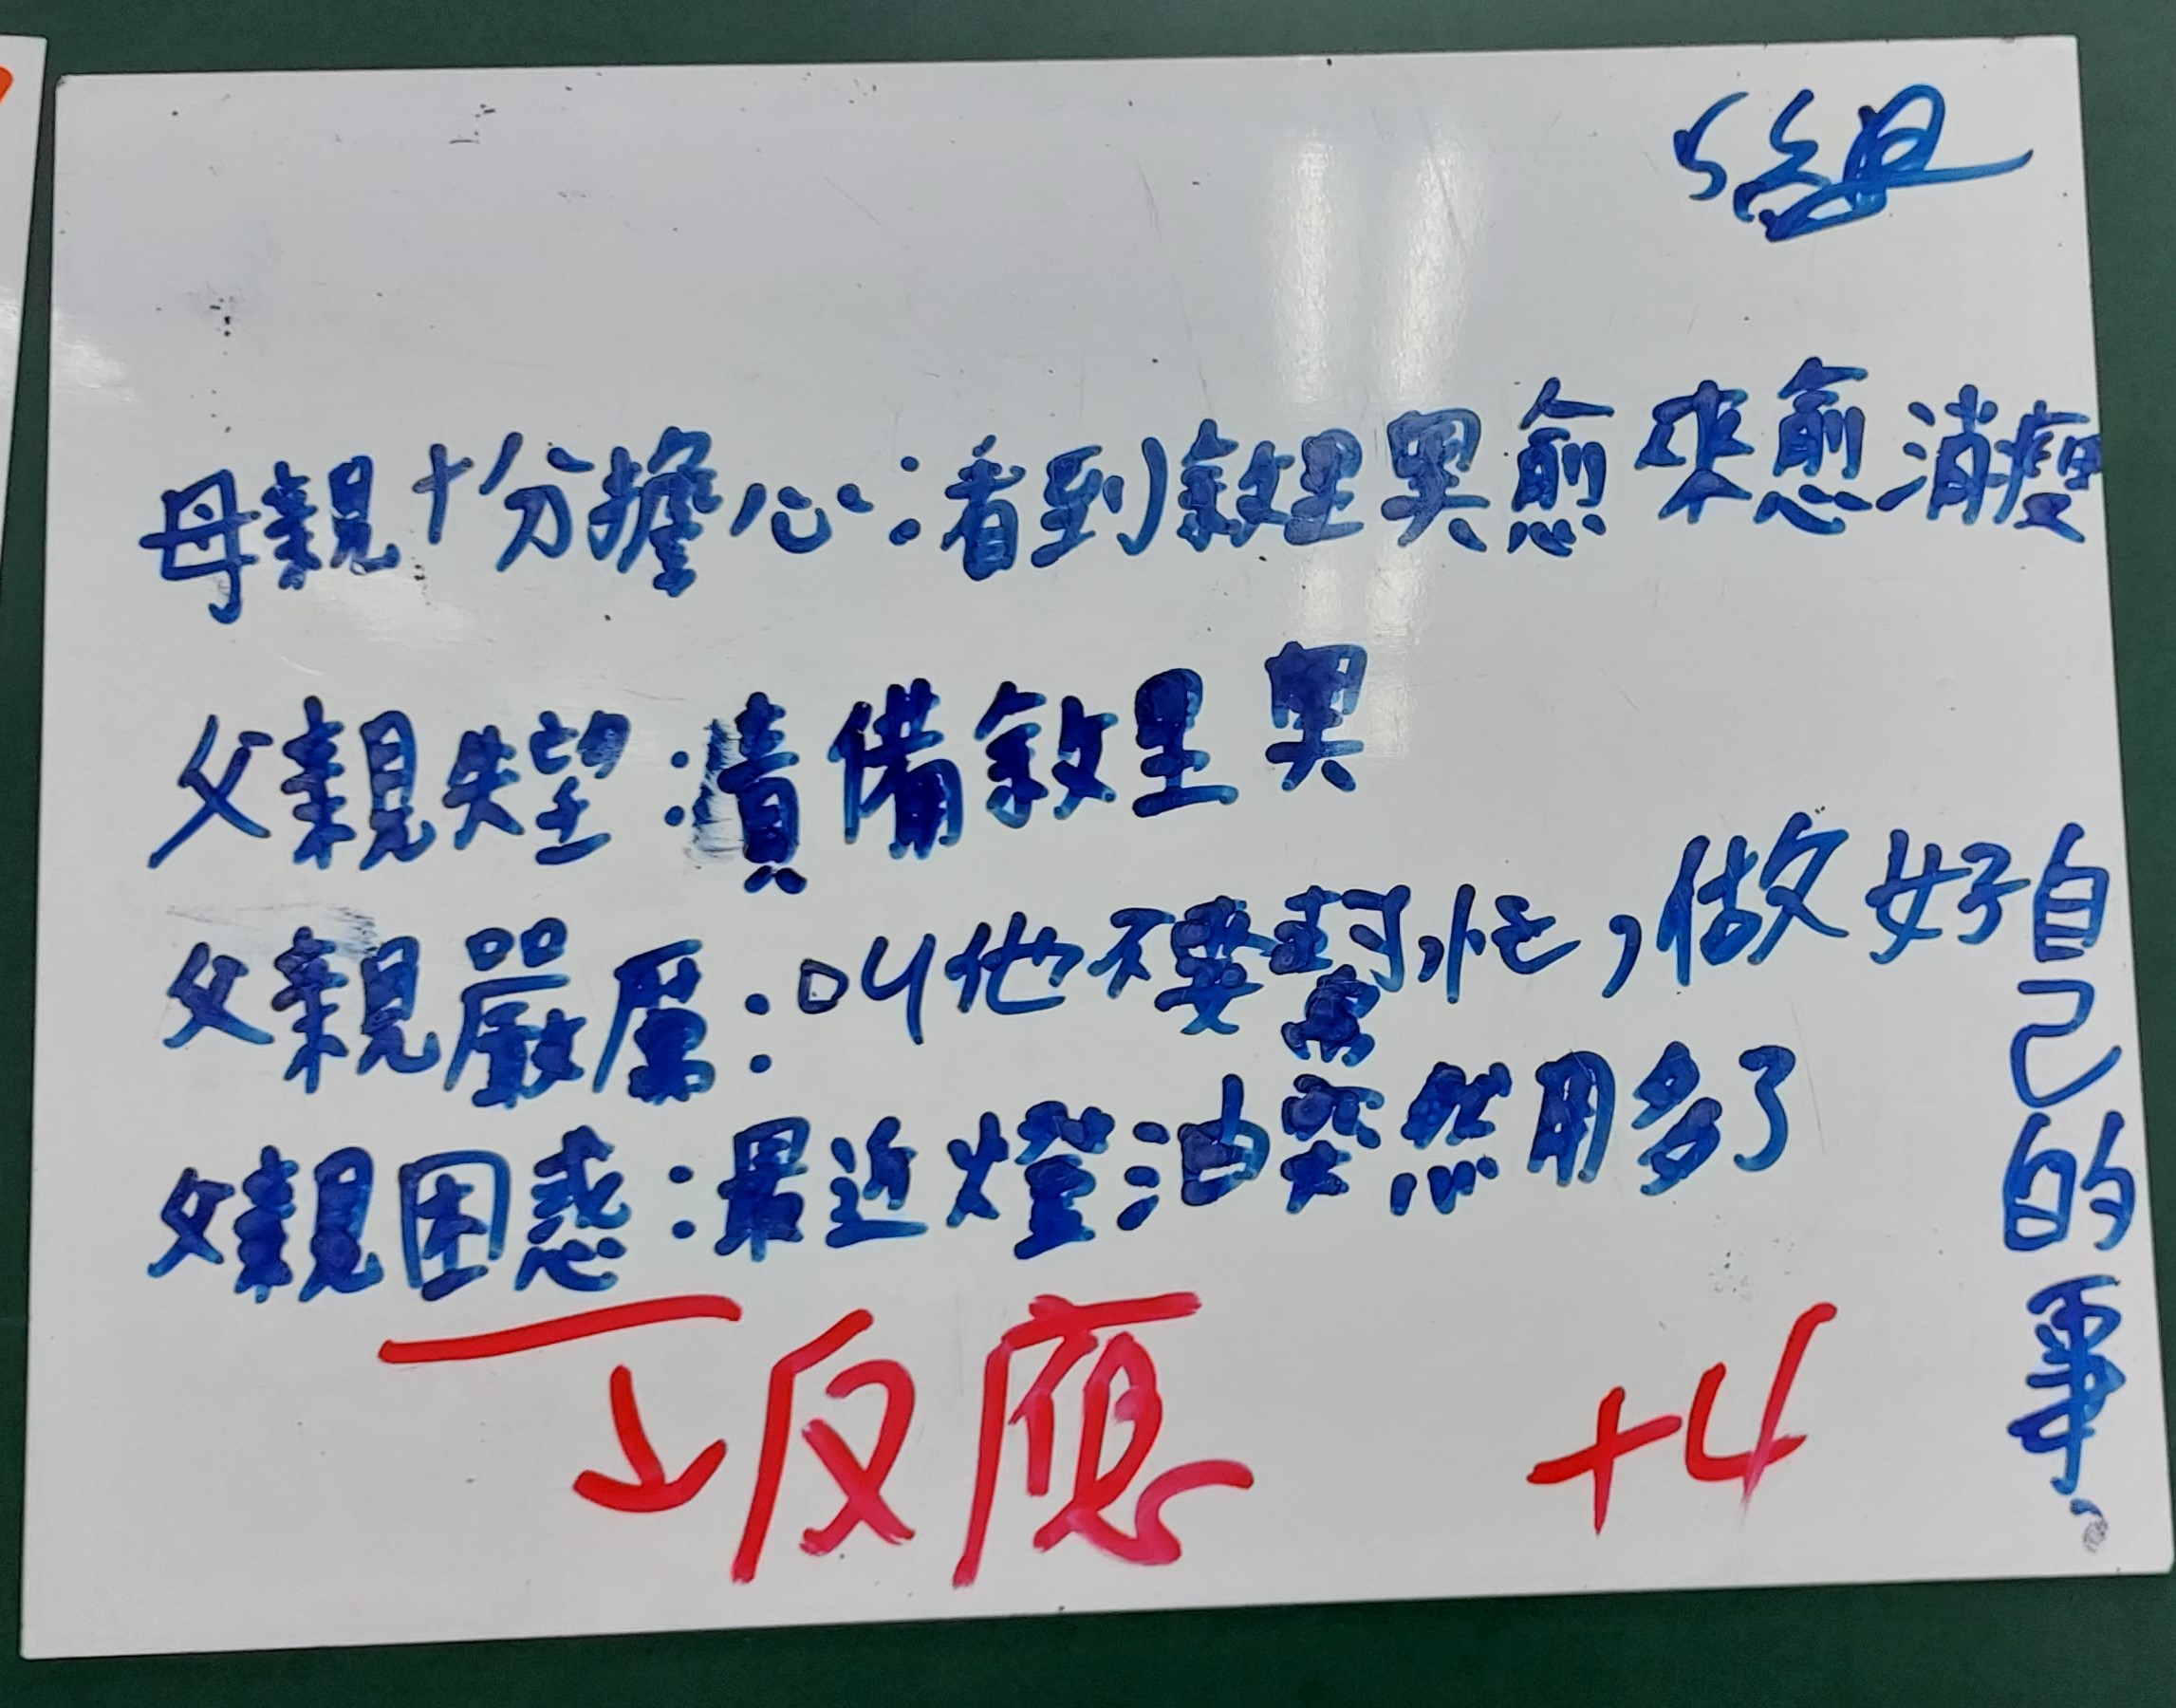 5組
母親十分擔心：看到敘里奧愈來愈消瘦
父親失望：責備敘里奧
父親嚴厲：叫他不要幫忙，做好自己的事。
父親困惑：最近燈油突然用多了
↓反應
+4